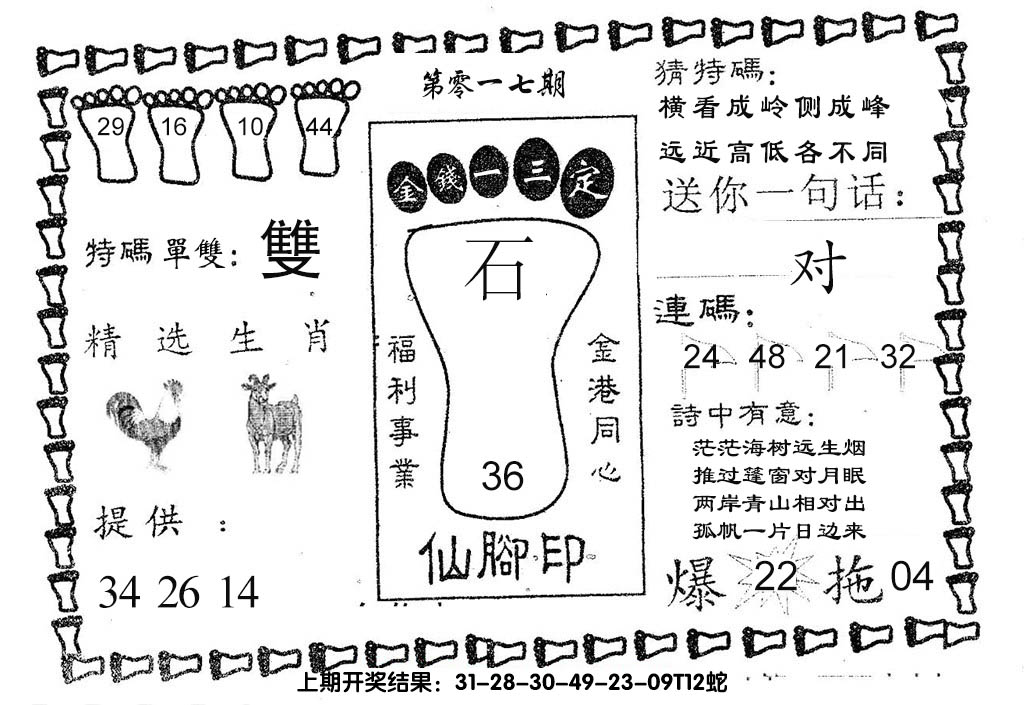 第零一七期
29 16 10 44
特碼單雙：雙
精选生肖
提供：
34 26 14
金錢一三定
石
福利事業
金港同心
36
仙腳印
猜特碼：
横看成岭侧成峰
远近高低各不同
送你一句话：
对
連碼：
24 48 21 32
詩中有意：
茫茫海树远生烟
推过篷窗对月眠
两岸青山相对出
孤帆一片日边来
爆 22 拖 04
上期开奖结果：31-28-30-49-23-09T12蛇